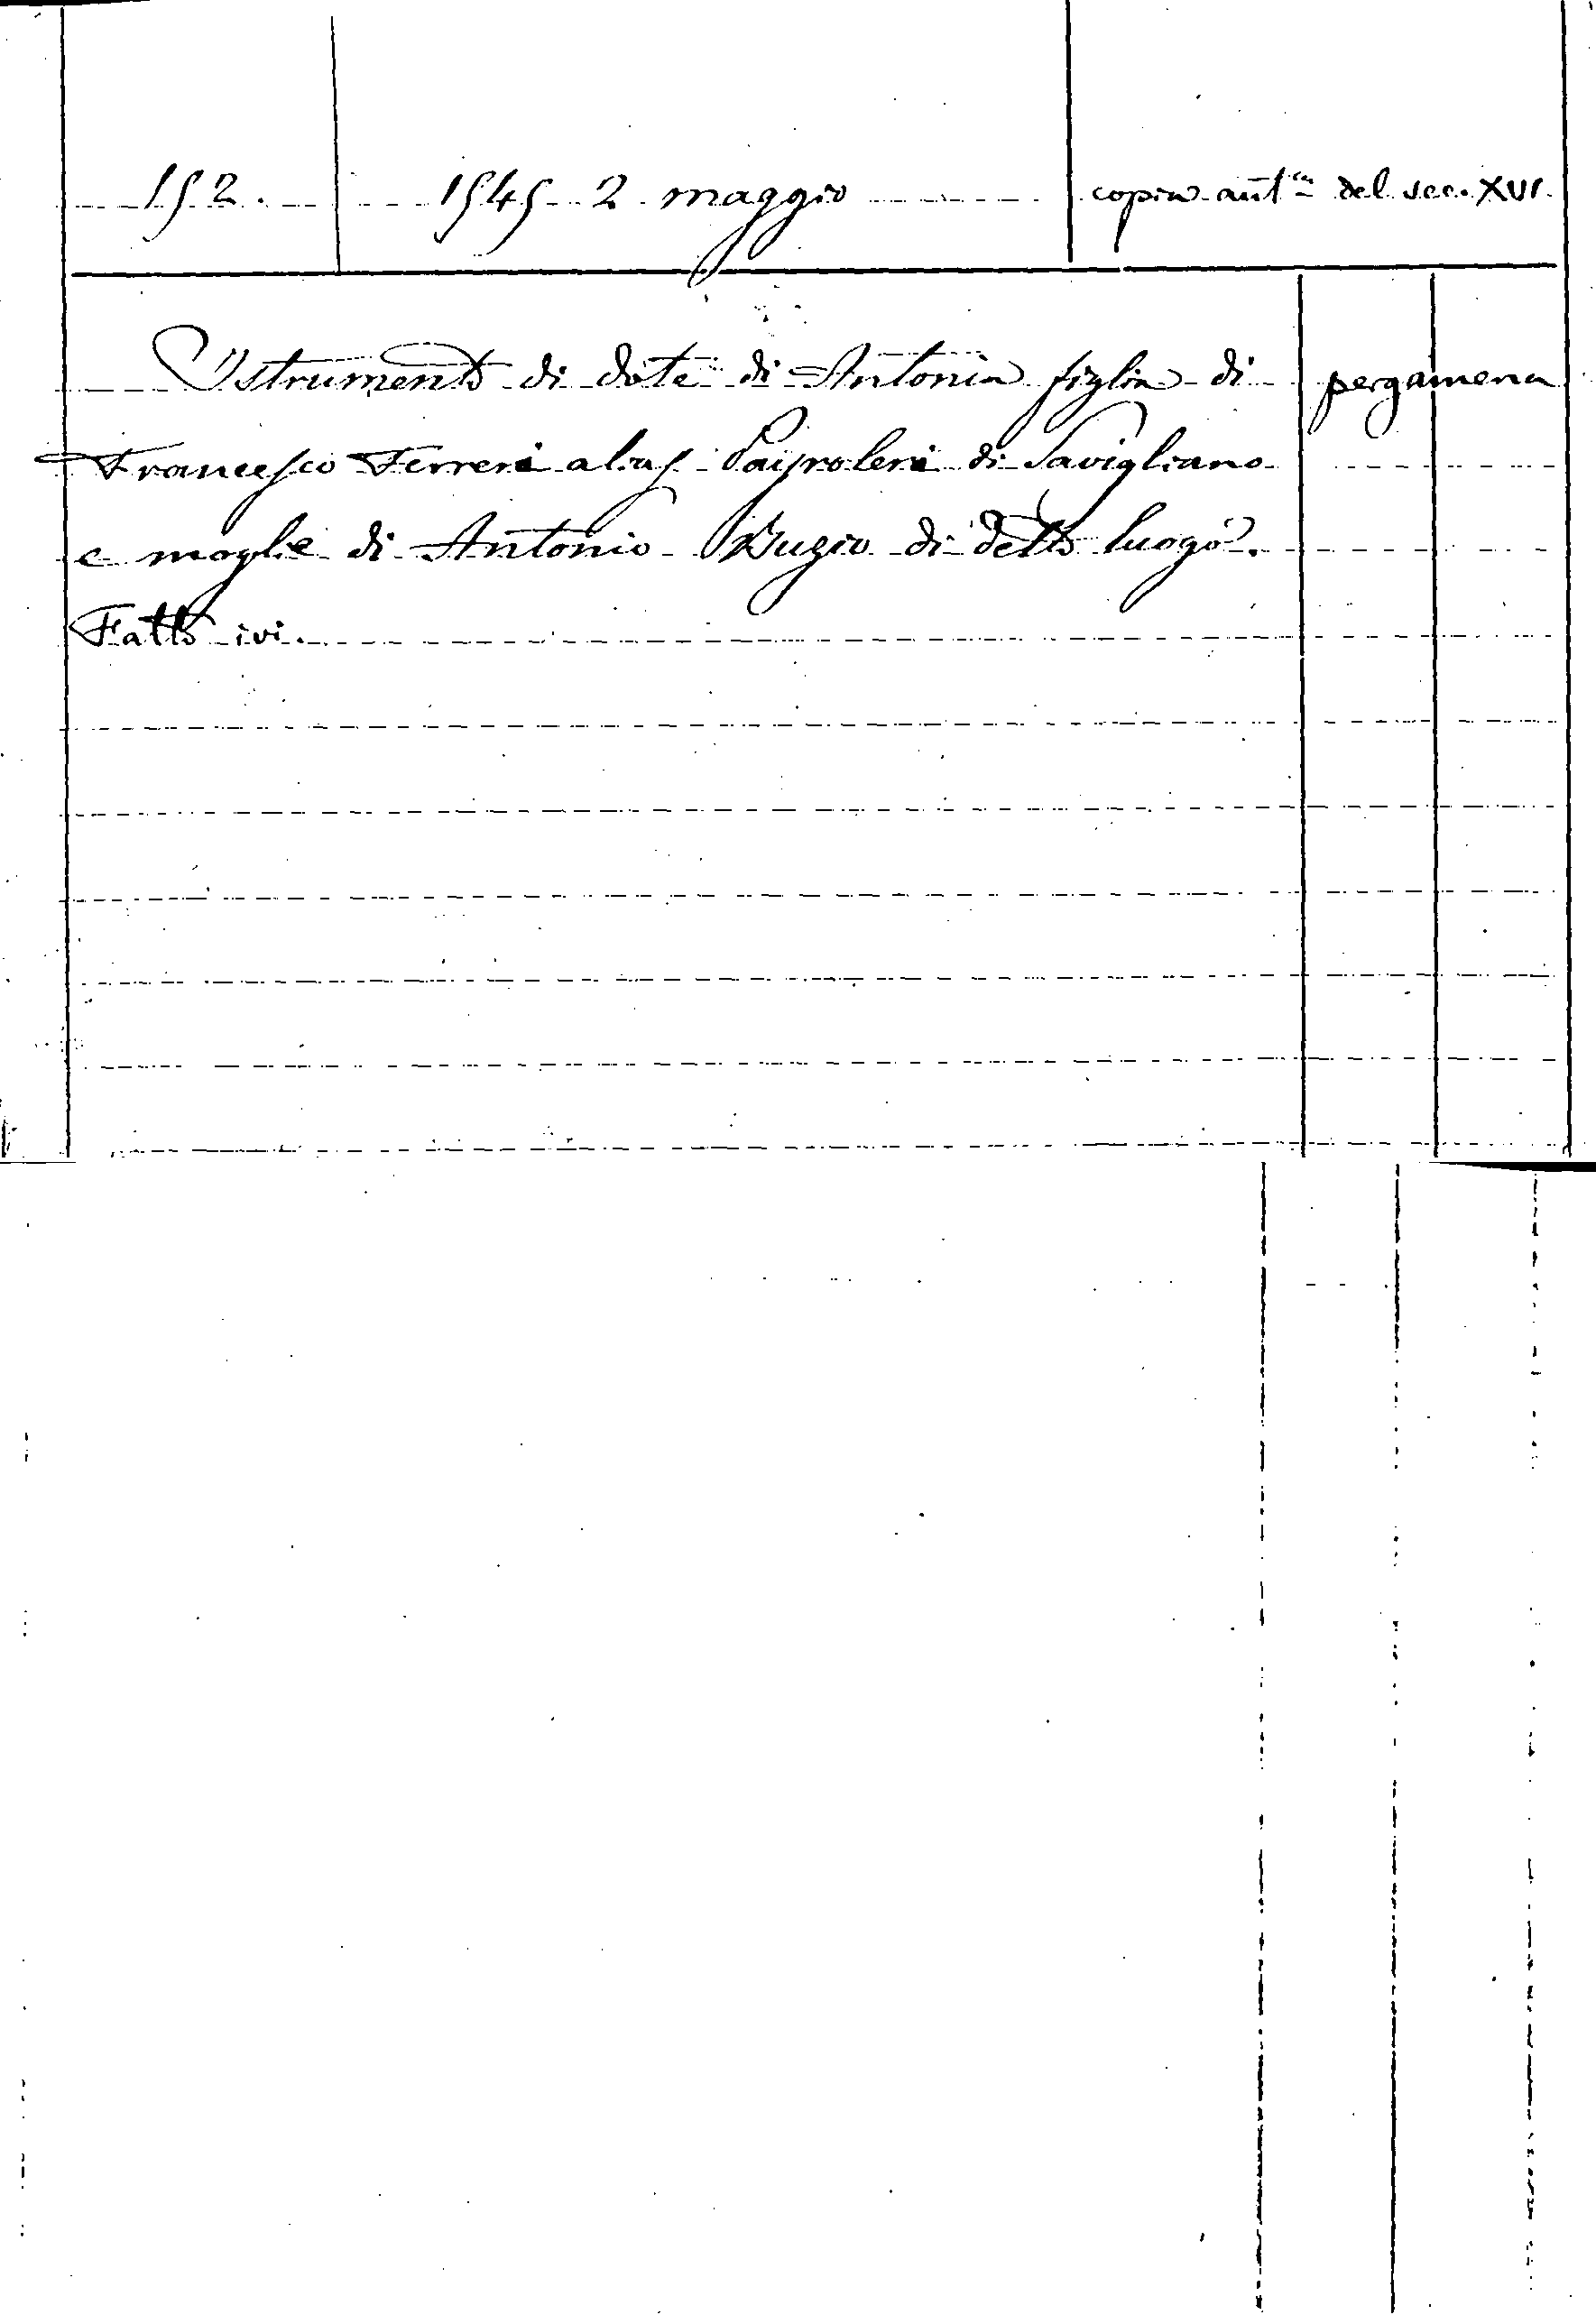 152.
1545 2 maggio
copia aut.ca del sec. XVI.
Istrumento di dote di Antonia figlia di
pergamena
Francesco Ferreri alias Pairoleri di Savigliano
e moglie di Antonio Bugio di detto luogo.
Fatto ivi.